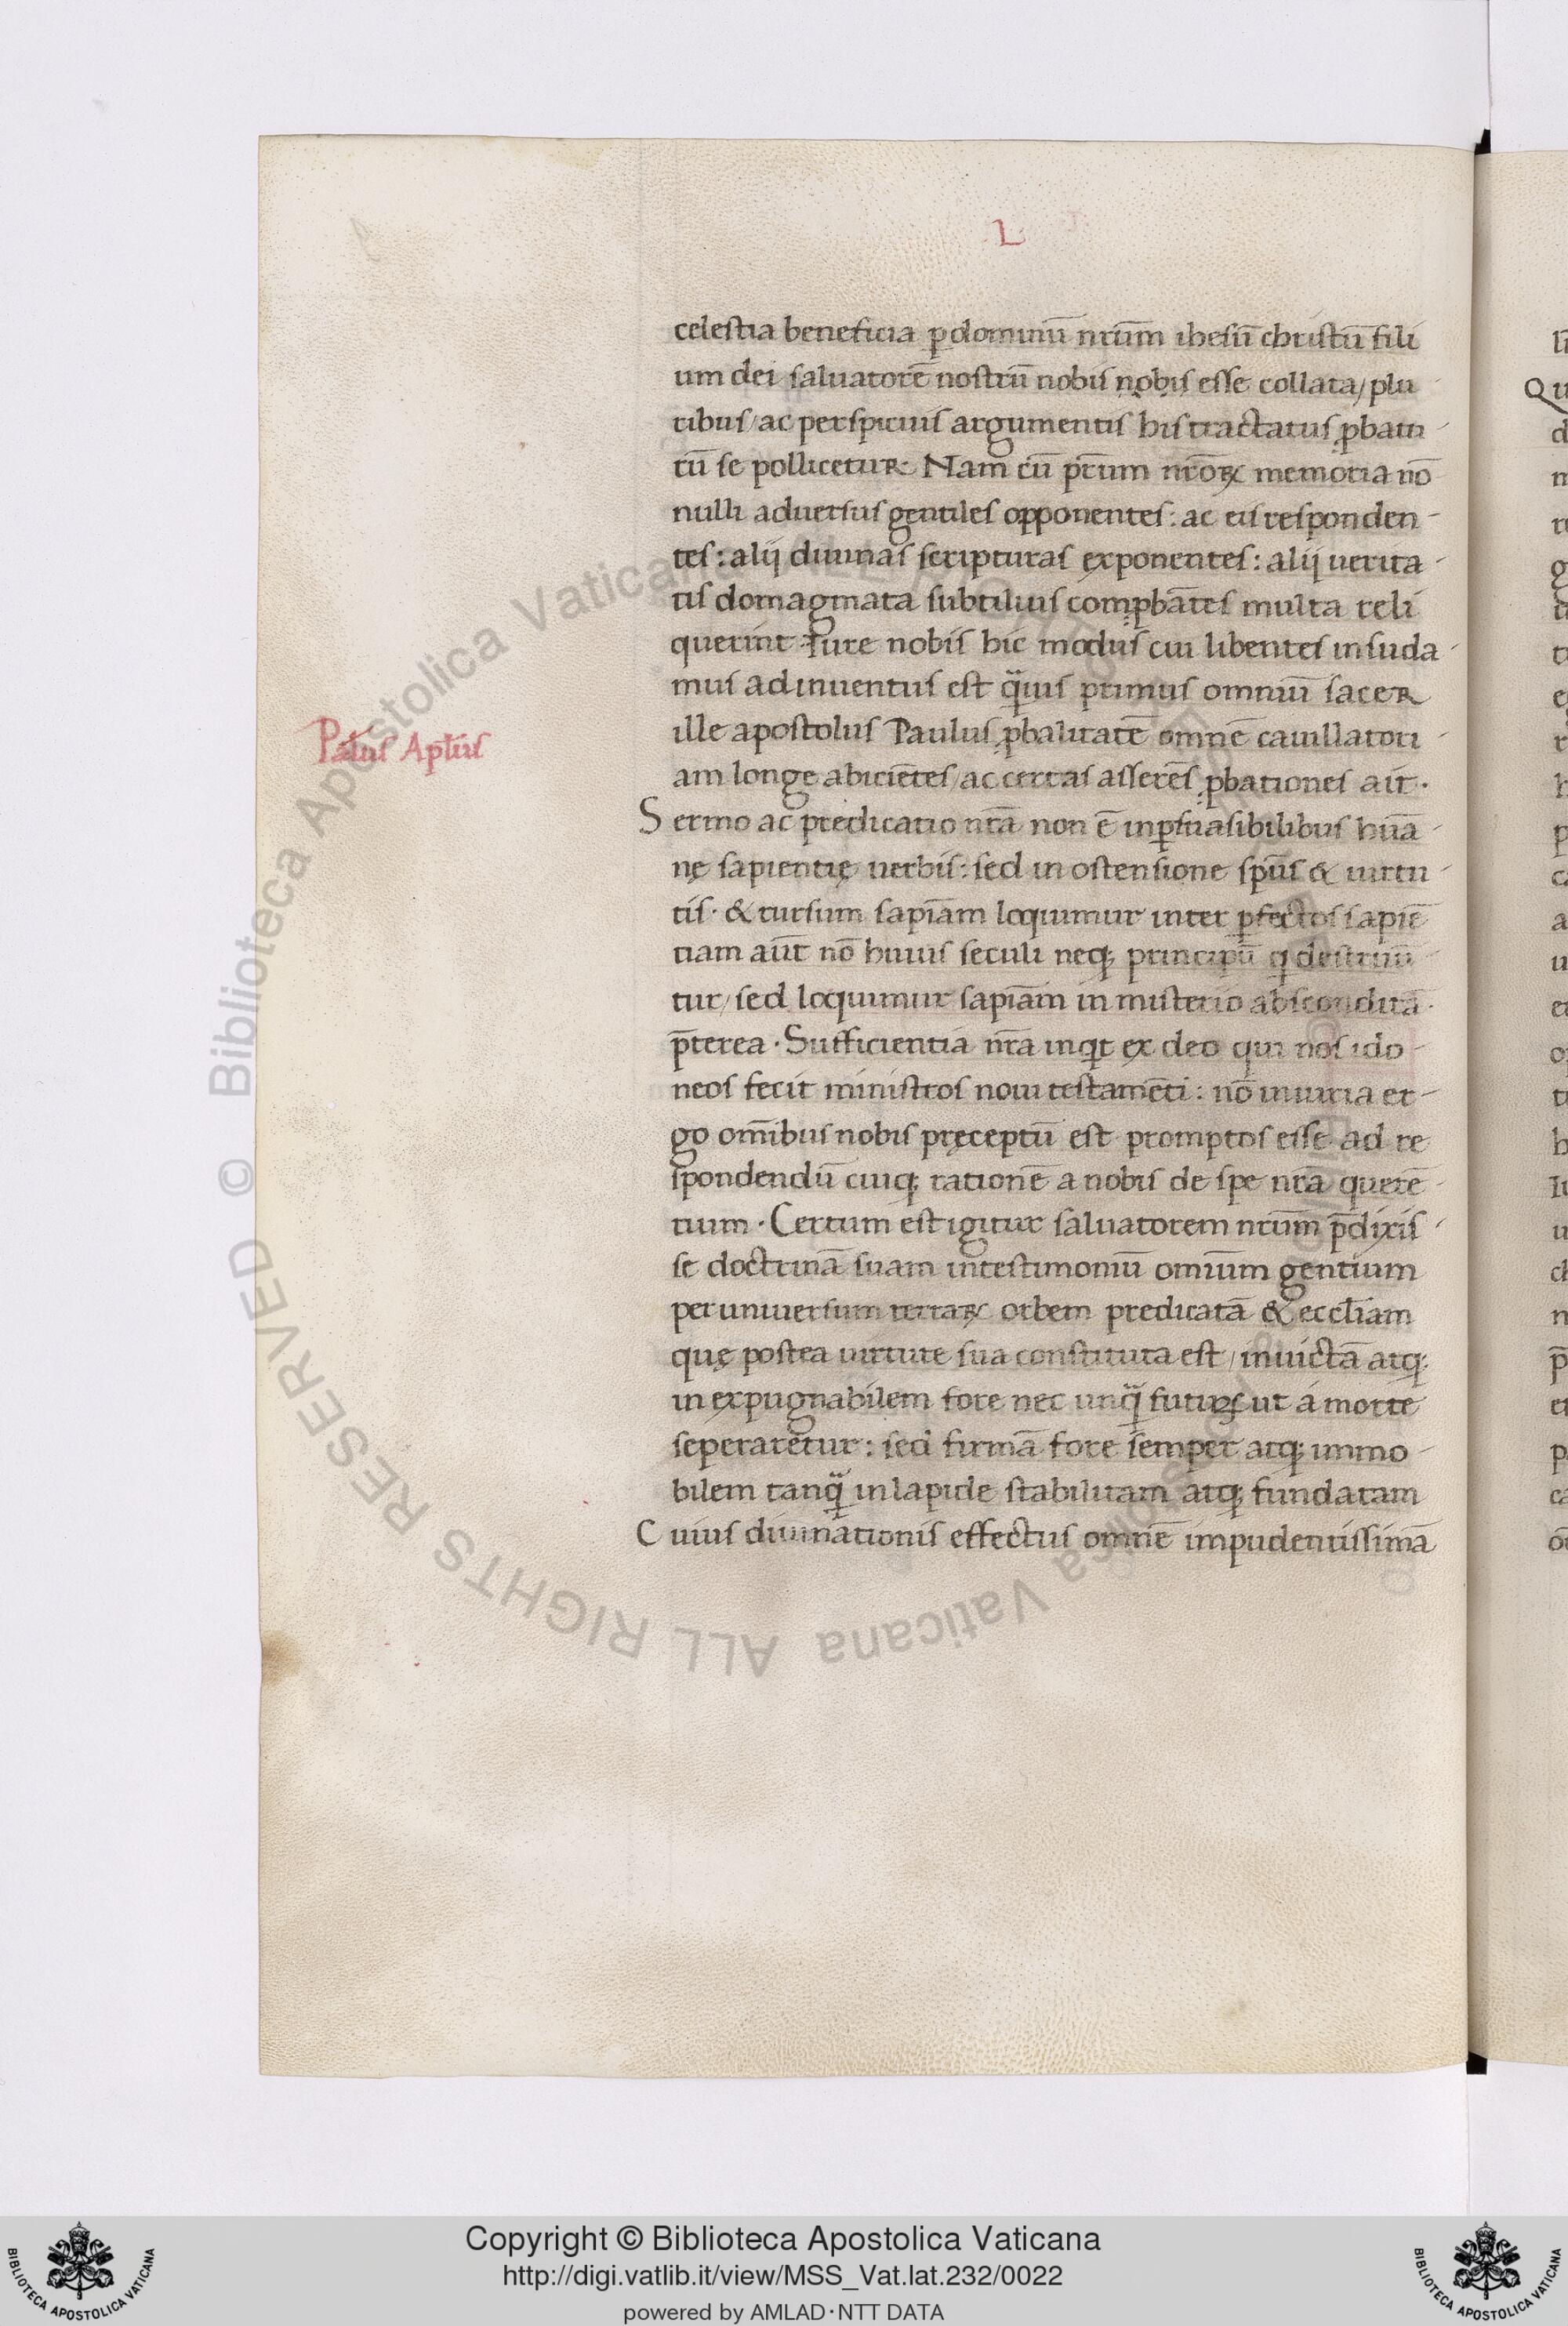 L
celestia beneficia ꝑ dominū nr̄um ihesū christū fili
um dei saluatorē nostrū nobis nobis esse collata/plu-
ribus/ac perspicuis argumentis his tractatus ꝓbatu-
rū se pollicetur. Nam cū ptr̄um nr̄oꝝ memoria nō
nulli aduersus gentiles opponentes: ac eis responden-
tes: alij diuinas scripturas exponentes: alij uerita-
tis domagmata subtilius comꝓbātes multa reli
querint: Iure nobis hic modus cui libentes insuda-
mus adinuentus est
primus omniū sacer
ille apostolus Paulus ꝓbalitatē omnē cauillatori-
Paulus Apl̄us
am longe abiciētes/ac certas asserēs ꝓbationes ait.
Sermo ac predicatio nr̄a non ē in ꝑsuasibilibus huā-
nę sapientię uerbis: sed in ostensione sp̄us & uirtu-
tis. & rursum sapīam loquimur inter ꝑfectos sapiē-
tiam aūt nō huius seculi neqꝫ principū q destruū-
tur/sed loquimur sapīam in misterio absconditā.
p̄terea. Sufficientia nr̄a inqt ex deo qui nos ido-
neos fecit ministros noui testamēti: nō iniuria er-
go om̄ibus nobis pręceptū est promptos esse ad re
spondendū cuiqꝫ rationē a nobis de spe nr̄a querē-
tium. Certum est igitur saluatorem nr̄um p̄dixis-
se doctrinā suam in testimoniū omīum gentium
per uniuersum terraꝝ orbem predicatā & eccl̄iam
quę postea uirtute sua constituta est/inuictā atqꝫ
inexpugnabilem fore nec unq̄ futuꝝ ut a morte
seperaretur: sed firmā fore semper atqꝫ immo-
bilem tanq̄ in lapide stabilitam atqꝫ fundatam
Cuius diuinationis effectus omnē impudentissimā
© Biblioteca Apostolica Vaticana ALL RIGHTS RESERVED
Copyright © Biblioteca Apostolica Vaticana
http://digi.vatlib.it/view/MSS_Vat.lat.232/0022
powered by AMLAD·NTT DATA
BIBLIOTECA APOSTOLICA VATICANA
BIBLIOTECA APOSTOLICA VATICANA